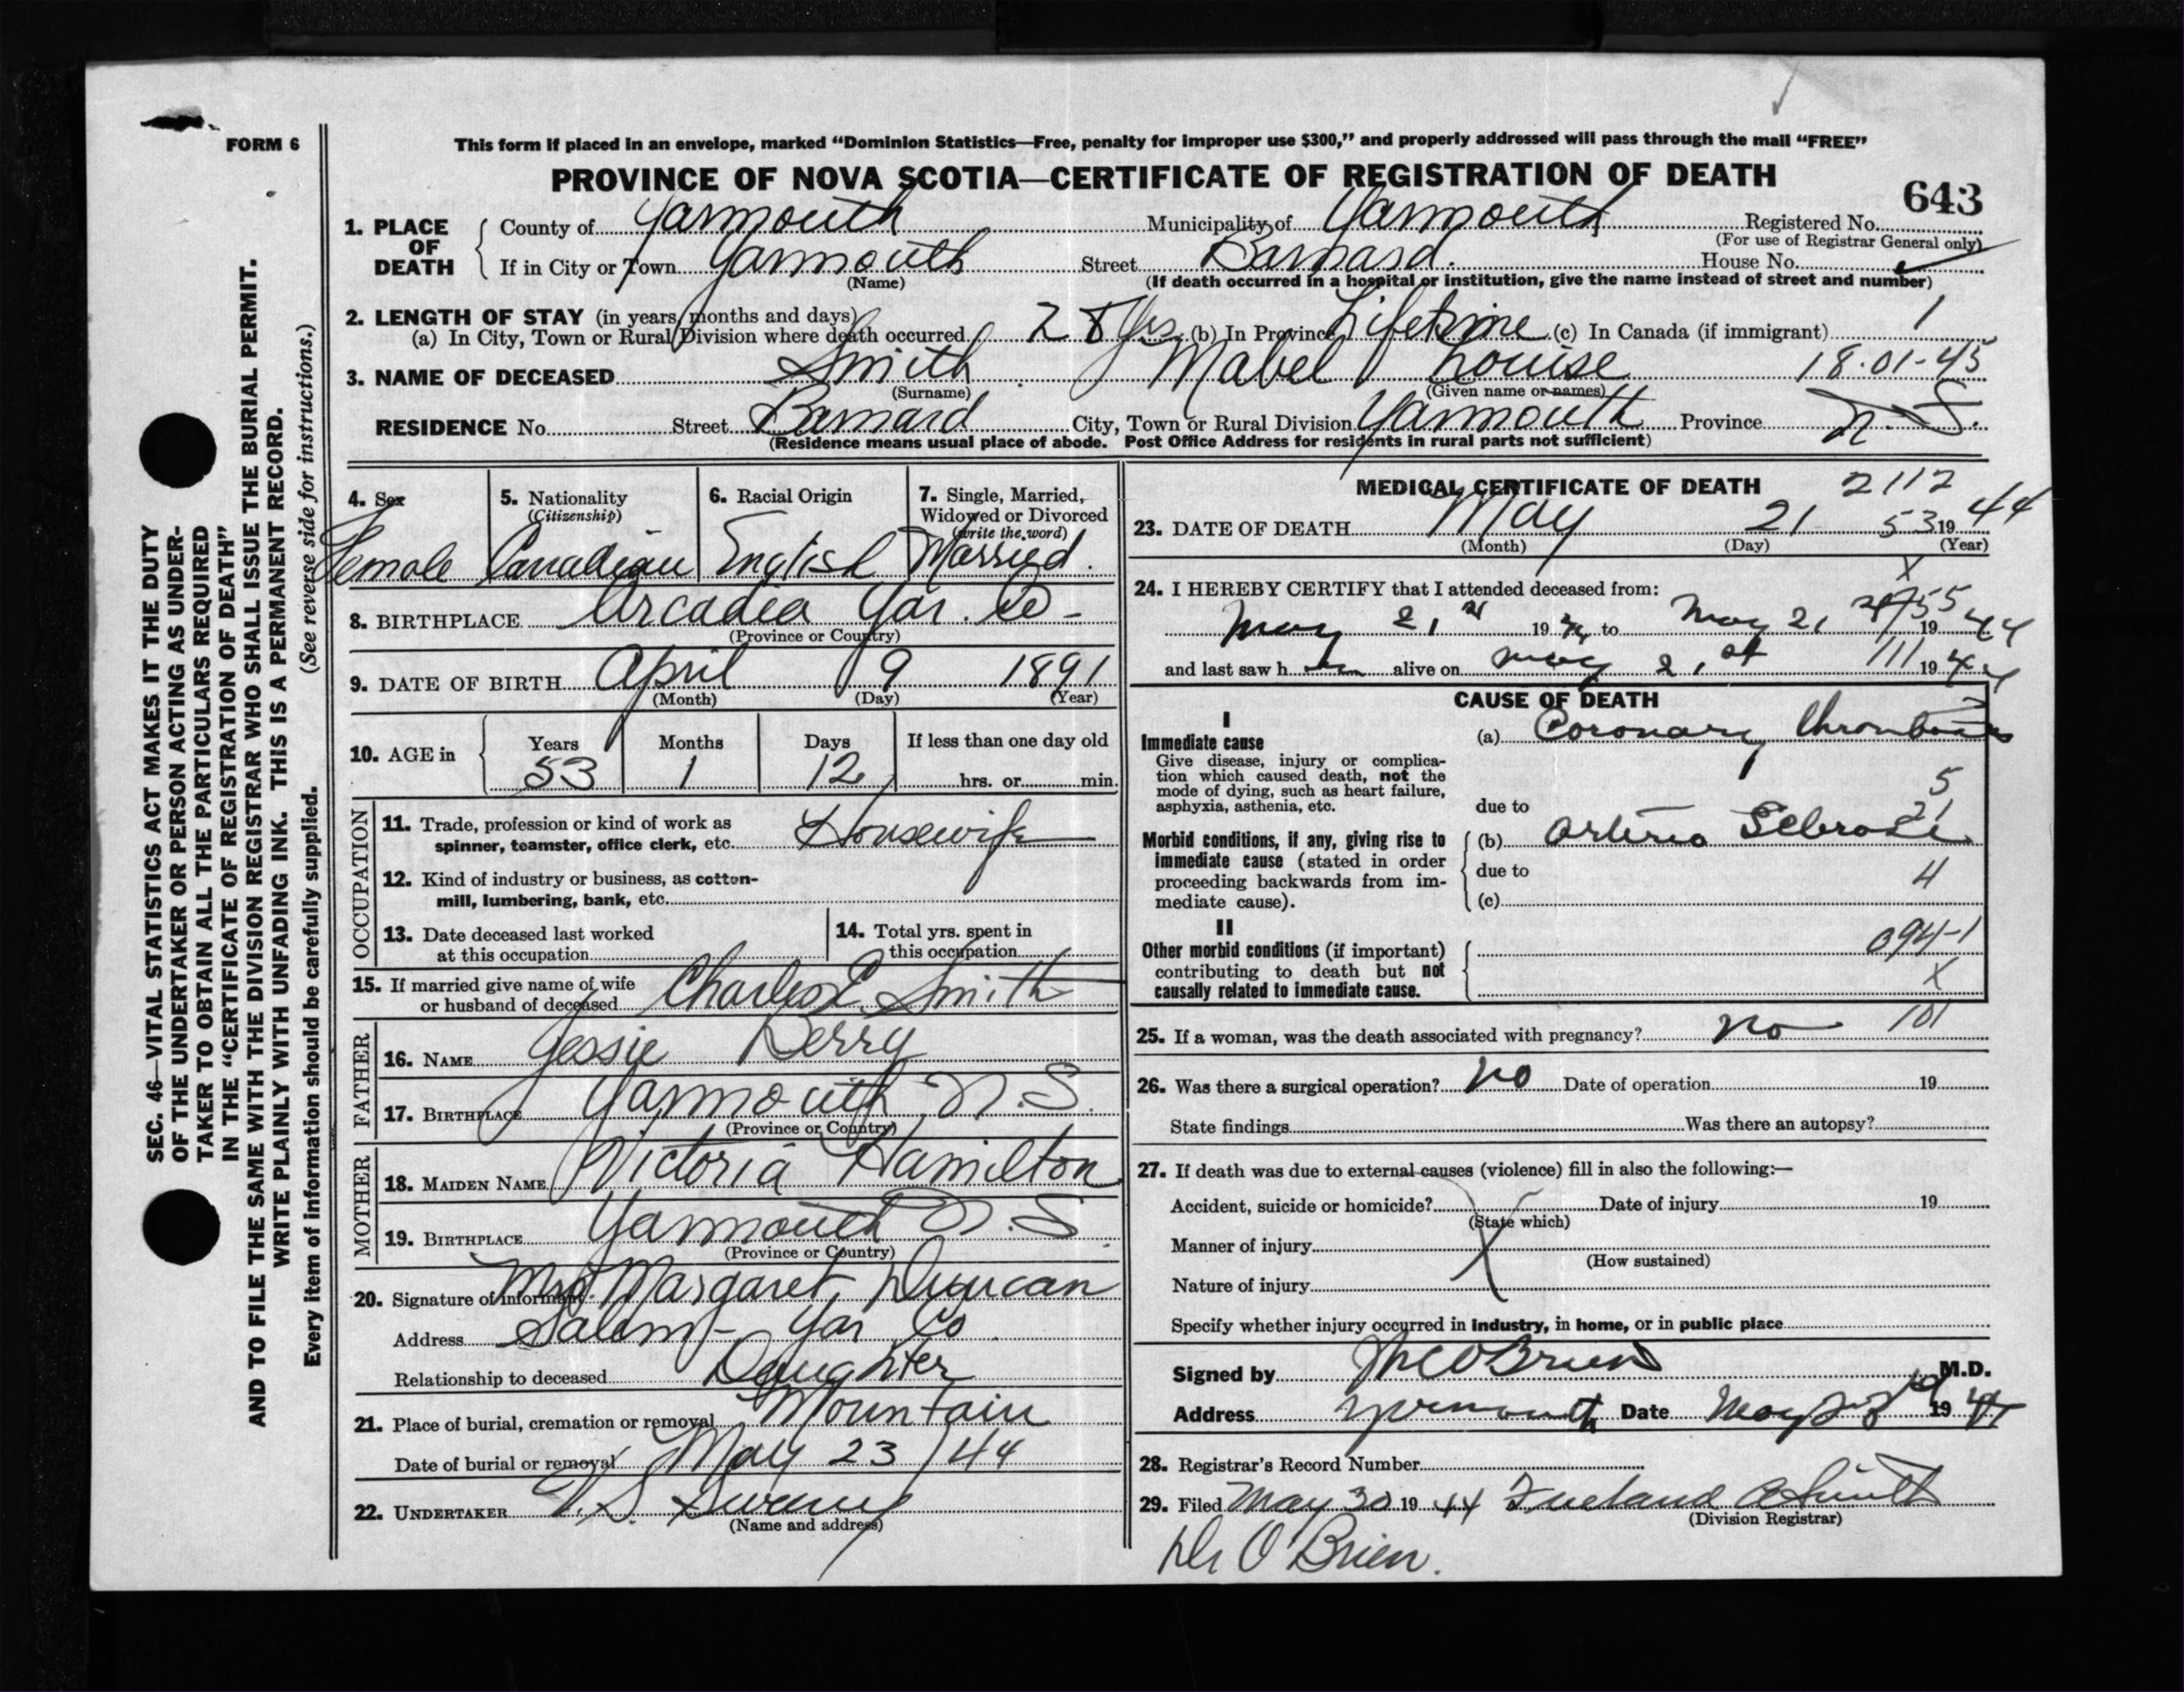 FORM 6
This form if placed in an envelope, marked “Dominion Statistics—Free, penalty for improper use $300,” and properly addressed will pass through the mail “FREE”
PROVINCE OF NOVA SCOTIA—CERTIFICATE OF REGISTRATION OF DEATH
643
1. PLACE OF DEATH { County of Yarmouth Municipality of Yarmouth Registered No.
(For use of Registrar General only)
If in City or Town Yarmouth Street Barnard House No.
(Name) (If death occurred in a hospital or institution, give the name instead of street and number)
2. LENGTH OF STAY (in years, months and days)
(a) In City, Town or Rural Division where death occurred 28 Yrs. (b) In Province Lifetime (c) In Canada (if immigrant) 1
3. NAME OF DECEASED Smith Mabel Louise 18-01-45
(Surname) (Given name or names)
RESIDENCE No. Street Barnard City, Town or Rural Division Yarmouth Province N.S.
(Residence means usual place of abode. Post Office Address for residents in rural parts not sufficient)
4. Sex 5. Nationality 6. Racial Origin 7. Single, Married,
(Citizenship) Widowed or Divorced
(write the word)
Female Canadian English Married.
8. BIRTHPLACE Arcadia Yar. Co-
(Province or Country)
9. DATE OF BIRTH April 9 1891
(Month) (Day) (Year)
10. AGE in { Years Months Days If less than one day old
53 1 12 hrs. or min.
OCCUPATION
11. Trade, profession or kind of work as
spinner, teamster, office clerk, etc. Housewife
12. Kind of industry or business, as cotton-
mill, lumbering, bank, etc.
13. Date deceased last worked 14. Total yrs. spent in
at this occupation this occupation
15. If married give name of wife
or husband of deceased Charles E. Smith
FATHER
16. NAME Jessie Berry
17. BIRTHPLACE Yarmouth, N.S.
(Province or Country)
MOTHER
18. MAIDEN NAME Victoria Hamilton
19. BIRTHPLACE Yarmouth N.S.
(Province or Country)
20. Signature of informant Mrs. Margaret Duncan
Address Salem - Yar. Co.
Relationship to deceased Daughter
21. Place of burial, cremation or removal Mountain
Date of burial or removal May 23/44
22. UNDERTAKER V.S. Sweeny
(Name and address)
MEDICAL CERTIFICATE OF DEATH 2112
23. DATE OF DEATH May 21 53 19 44
(Month) (Day) (Year)
X
24. I HEREBY CERTIFY that I attended deceased from:
May 21 st 19 44 to May 21 19 44
and last saw h er alive on May 21 st 111 19 44
CAUSE OF DEATH
I
Immediate cause (a) Coronary thrombosis
Give disease, injury or complica-
tion which caused death, not the
mode of dying, such as heart failure, 5
asphyxia, asthenia, etc. due to 21
Morbid conditions, if any, giving rise to (b) Arterio Sclerosis
immediate cause (stated in order
proceeding backwards from im- due to 4
mediate cause). (c)
II
Other morbid conditions (if important) 094-1
contributing to death but not X
causally related to immediate cause.
25. If a woman, was the death associated with pregnancy? no 101
26. Was there a surgical operation? no Date of operation 19
State findings Was there an autopsy?
27. If death was due to external causes (violence) fill in also the following:—
Accident, suicide or homicide? Date of injury 19
(State which)
Manner of injury X
(How sustained)
Nature of injury
Specify whether injury occurred in industry, in home, or in public place
Signed by O'Brien M.D.
Address Yarmouth Date May 19 44
28. Registrar's Record Number
29. Filed May 30 19 44 Smith
(Division Registrar)
Dr O'Brien.
SEC. 46—VITAL STATISTICS ACT MAKES IT THE DUTY
OF THE UNDERTAKER OR PERSON ACTING AS UNDER-
TAKER TO OBTAIN ALL THE PARTICULARS REQUIRED
IN THE “CERTIFICATE OF REGISTRATION OF DEATH”
AND TO FILE THE SAME WITH THE DIVISION REGISTRAR WHO SHALL ISSUE THE BURIAL PERMIT.
WRITE PLAINLY WITH UNFADING INK. THIS IS A PERMANENT RECORD.
Every item of information should be carefully supplied. (See reverse side for instructions.)